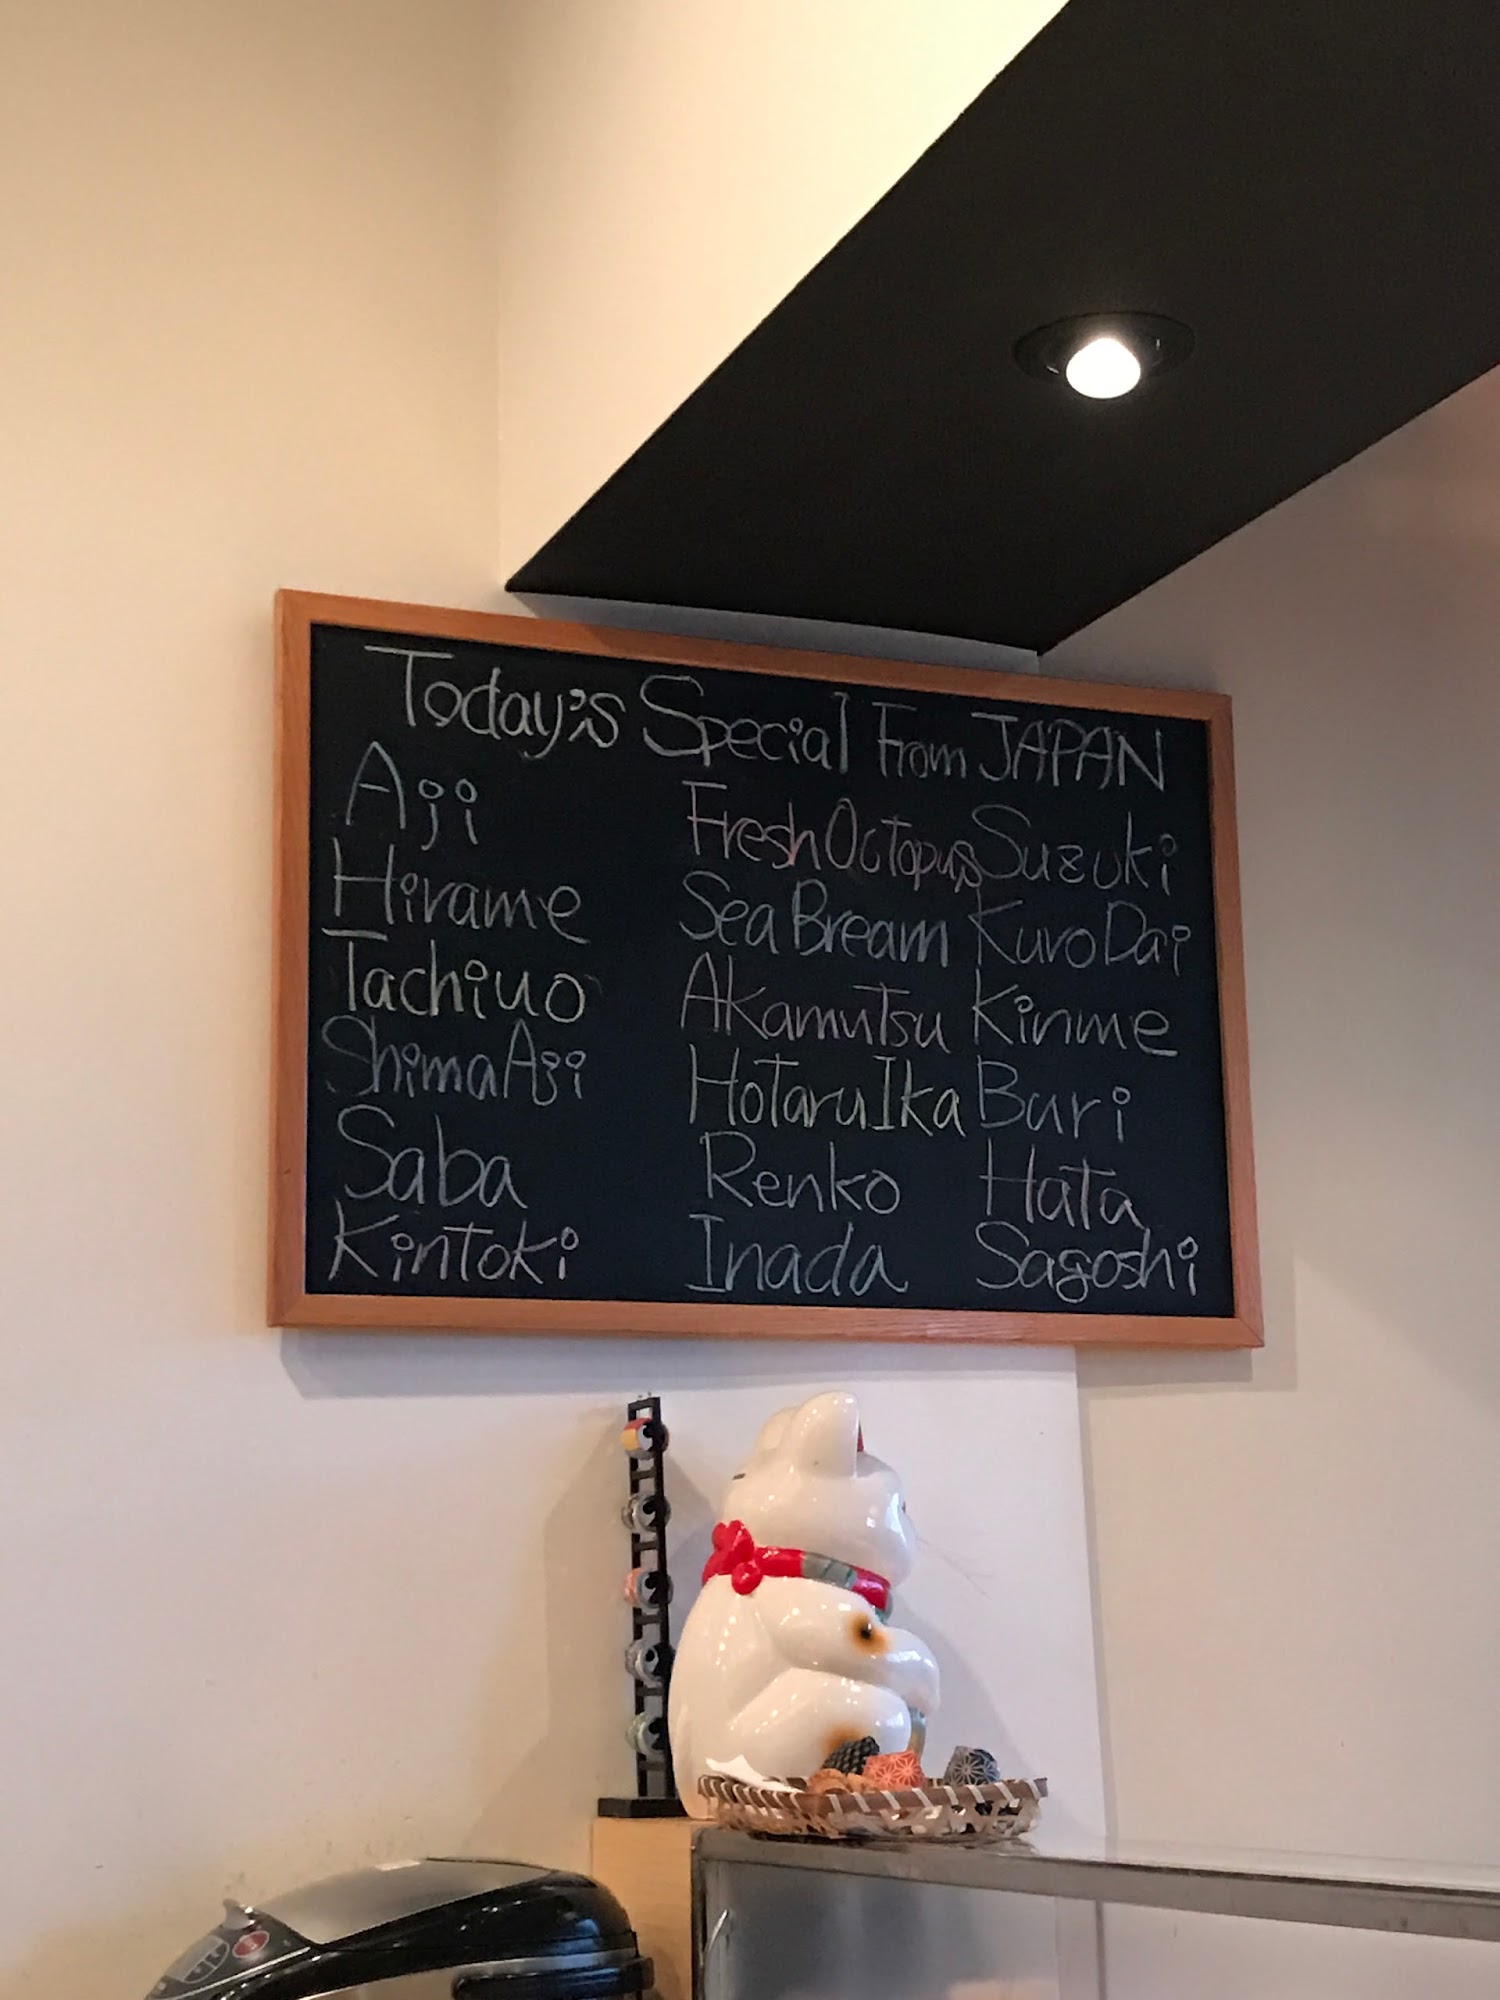 Today's Special From JAPAN
Aji
Hirame
Tachiuo
Shima Aji
Saba
Kintoki
Fresh Octopus
Sea Bream
Akamutsu
Hotaru Ika
Renko
Inada
Suzuki
Kuro Dai
Kinme
Buri
Hata
Sagoshi